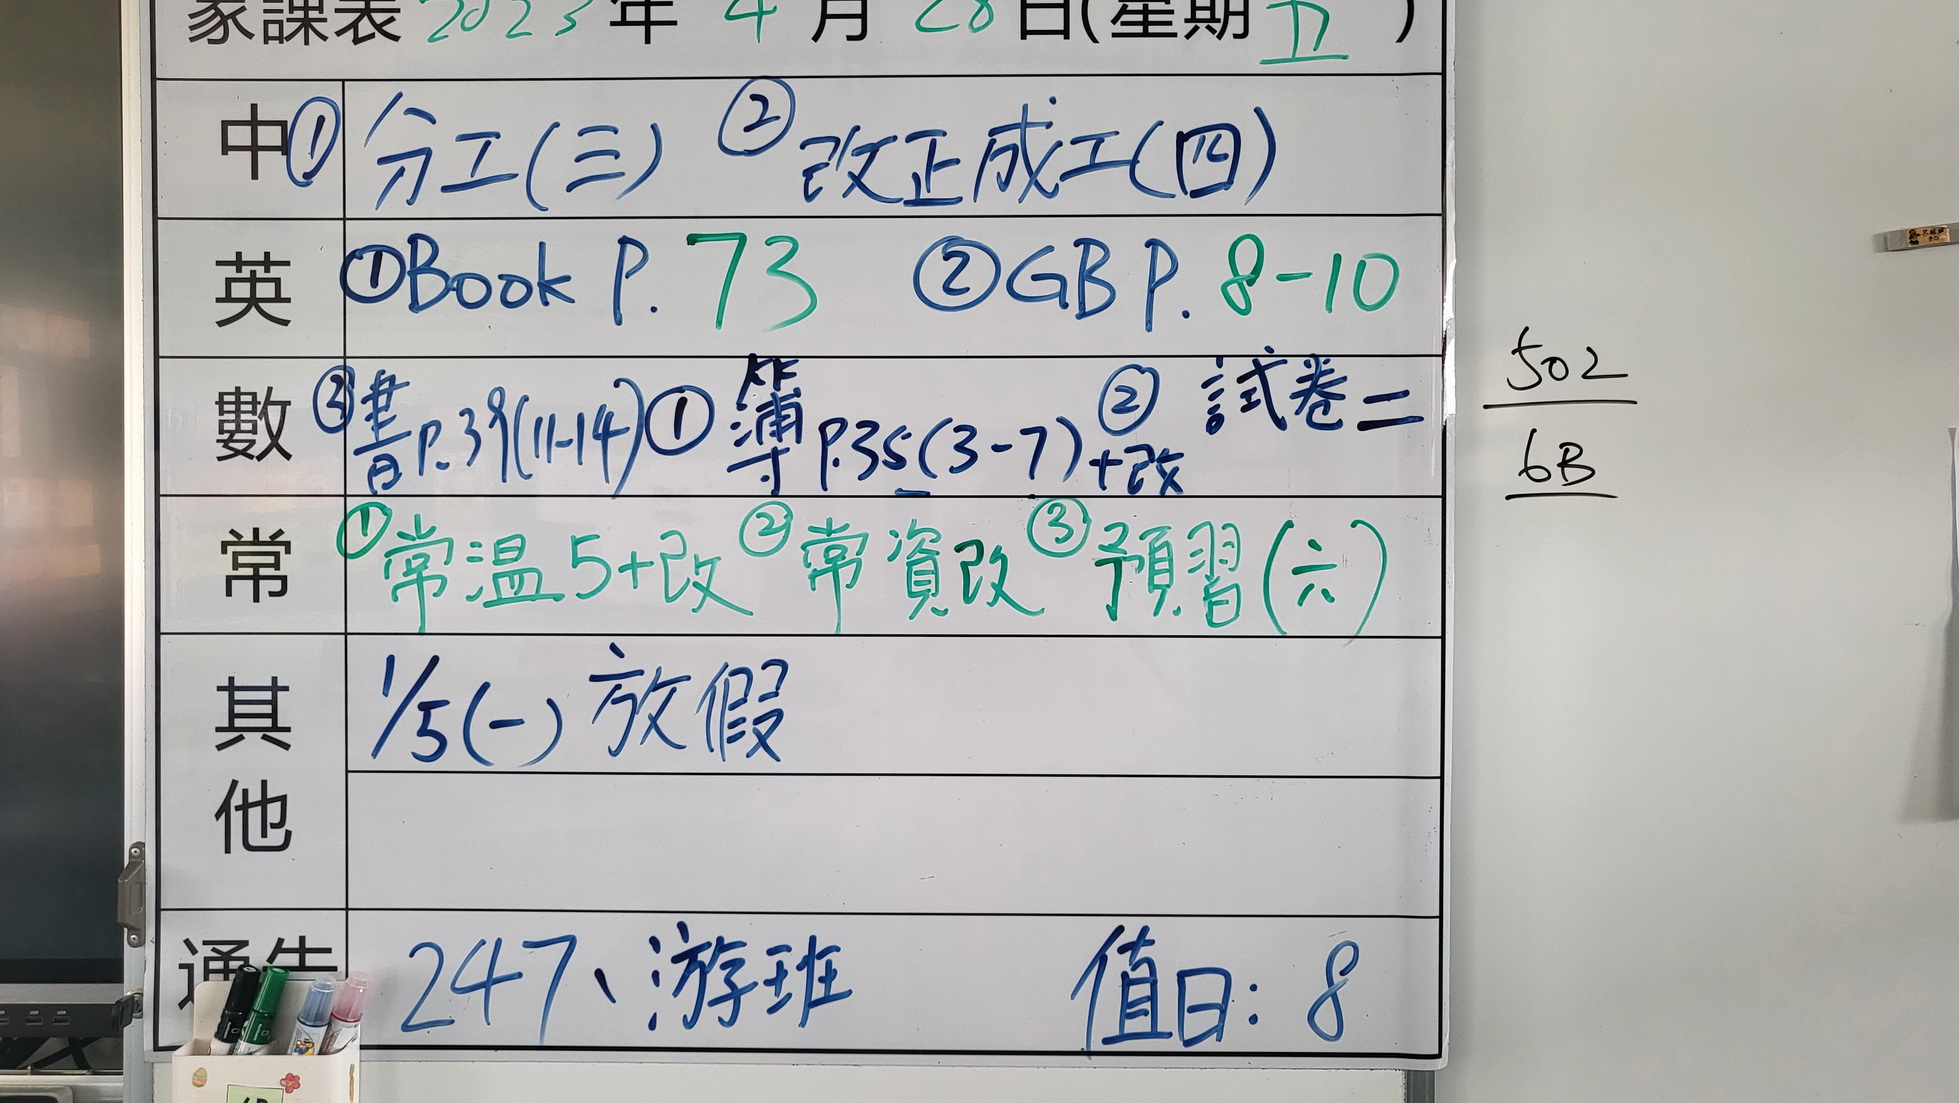 家課表 2023 年 4 月 28 日(星期 五 )
中 ① 分工(三) ② 改正成工(四)
英 ①Book P. 73 ②GB P. 8-10
數 ③書P.39(11-14) ①簿P.35(3-7) ②試卷二+改
常 ①常温5+改 ②常資改 ③預習(六)
其他 1/5(一) 放假
通告 247、游班 值日: 8
502
6B